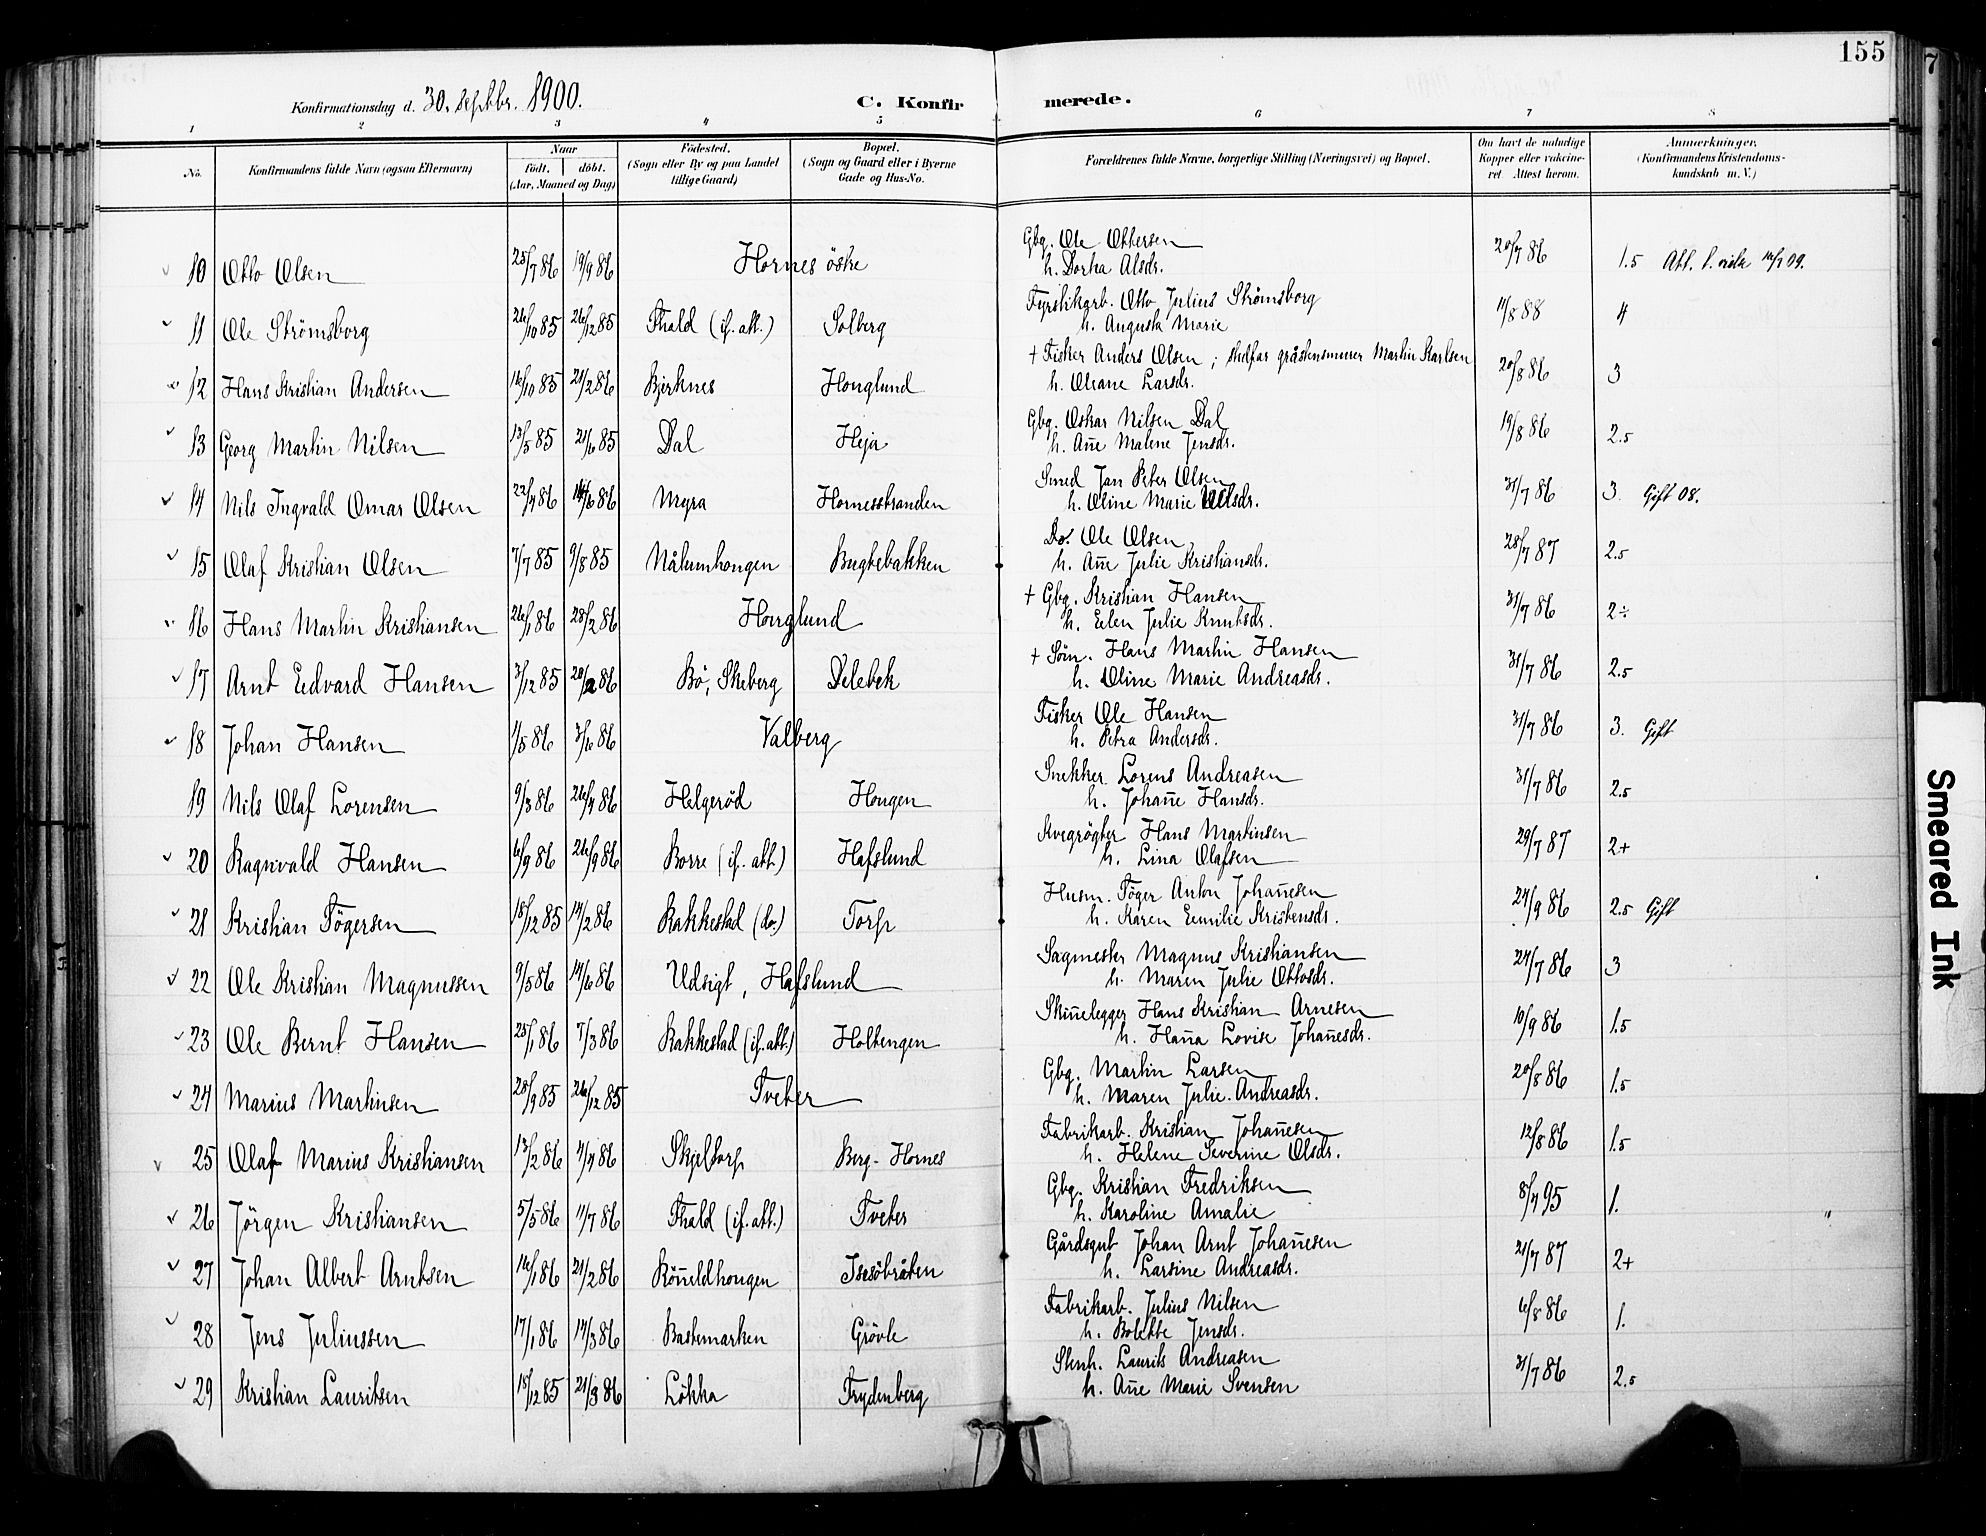 155
7
Konfirmationsdag d. 30. septbr. 1900.
C. Konfirmerede.
1 2 3 4 5 6 7 8
No.
Konfirmandens fulde Navn (ogsaa Efternavn)
Naar
födt. döbt.
(Aar, Maaned og Dag)
Födested.
(Sogn eller By og paa Landet
tillige Gaard)
Bopæl.
(Sogn og Gaard eller i Byerne
Gade og Hus-No.
Forældrenes fulde Navne, borgerlige Stilling (Næringsvei) og Bopæl.
Om havt de naturlige
Kopper eller vakcine-
ret Attest herom.
Anmerkninger.
(Konfirmandens Kristendoms-
kundskab m. V.)
10 Otto Olsen 25/7 86 19/9 86 Hornes östre Gbg. Ole Ottersen 20/7 86 1.5
h. Dorthea Alsdr.
11 Ole Strömsborg 26/10 85 26/12 85 Fhald (if. att.) Solberg Fyrstikarb. Otto Julius Strömsborg 11/8 88 4
h. Augusta Marie
12 Hans Kristian Andersen 16/10 85 21/2 86 Bjerknes Honglund + Fisker Anders Olsen; stedfar gråstensmurer Martin Karlsen 20/8 86 3
h. Oleane Larsdr.
13 Georg Martin Nilsen 13/5 85 21/6 85 Dal Heja Gbg. Oskar Nilsen Dal 19/8 86 2.5
h. Ane Malene Jensdr.
14 Nils Ingvald Omar Olsen 22/4 86 14/6 86 Myra Hornesstranden Smed Jan Peter Olsen 31/7 86 3. Gift 08.
h. Oline Marie Nilsdr.
15 Olaf Kristian Olsen 7/7 85 9/8 85 Nålumhongen Bugtebakken Do. Ole Olsen 28/7 87 2.5
h. Ane Julie Kristiansdr.
16 Hans Martin Kristiansen 26/1 86 28/2 86 Honglund + Gbg. Kristian Hansen 31/7 86 2÷
h. Elen Julie Knutsdr.
17 Arnt Edvard Hansen 3/12 85 28/2 86 Bö, Skeberg Delebek + Söm. Hans Martin Hansen 31/7 86 2.5
h. Oline Marie Andreasdr.
18 Johan Hansen 1/5 86 3/6 86 Valberg Fisker Ole Hansen 31/7 86 3. Gift
h. Petra Andersdr.
19 Nils Olaf Lorensen 9/3 86 26/4 86 Helgeröd Hongen Snekker Lorens Andreasen 31/7 86 2.5
h. Johane Hansdr.
20 Ragnvald Hansen 6/9 86 26/9 86 Borre (if. att.) Hafslund Kvegrögter Hans Martinsen 29/7 87 2+
h. Lina Olafsen
21 Kristian Tögersen 18/12 85 14/2 86 Rakkestad (do.) Torp Husm. Töger Anton Johanesen 24/9 86 2.5 Gift
h. Karen Emilie Kristensdr.
22 Ole Kristian Magnussen 9/5 86 14/6 86 Udsigt, Hafslund Sagmester Magnus Kristiansen 24/7 86 3
h. Maren Julie Ottosdr.
23 Ole Bernt Hansen 25/1 86 7/3 86 Rakkestad (if. att.) Holtengen Skinelegger Hans Kristian Arnesen 10/9 86 1.5
h. Hana Lovise Johanesdr.
24 Marius Martinsen 28/9 85 26/12 85 Tveter Gbg. Martin Larsen 20/8 86 1.5
h. Maren Julie Andreasdr.
25 Olaf Marius Kristiansen 13/2 86 4/4 86 Skjeltorp Berg-Hornes Fabrikarb. Kristian Johanesen 12/8 86 1.5
h. Helene Severine Olsdr.
26 Jörgen Kristiansen 5/5 86 11/7 86 Fhald (if. att.) Tveter Gbg. Kristian Fredriksen 8/4 95 1.
h. Karoline Amalie
27 Johan Albert Arntsen 16/1 86 21/2 86 Röneldhongen Isesöbråten Gårdsgut Johan Arnt Johanesen 21/7 87 2+
h. Larsine Andreasdr.
28 Jens Juliussen 17/1 86 14/3 86 Bastemarken Grövle Fabrikarb. Julius Nilsen 6/8 86 1.
h. Bolette Jensdr.
29 Kristian Lauritsen 15/12 85 21/3 86 Lökka Frydenberg Stenh. Laurits Andreasen 31/7 86 2.5
h. Ane Marie Svensen
Smeared Ink